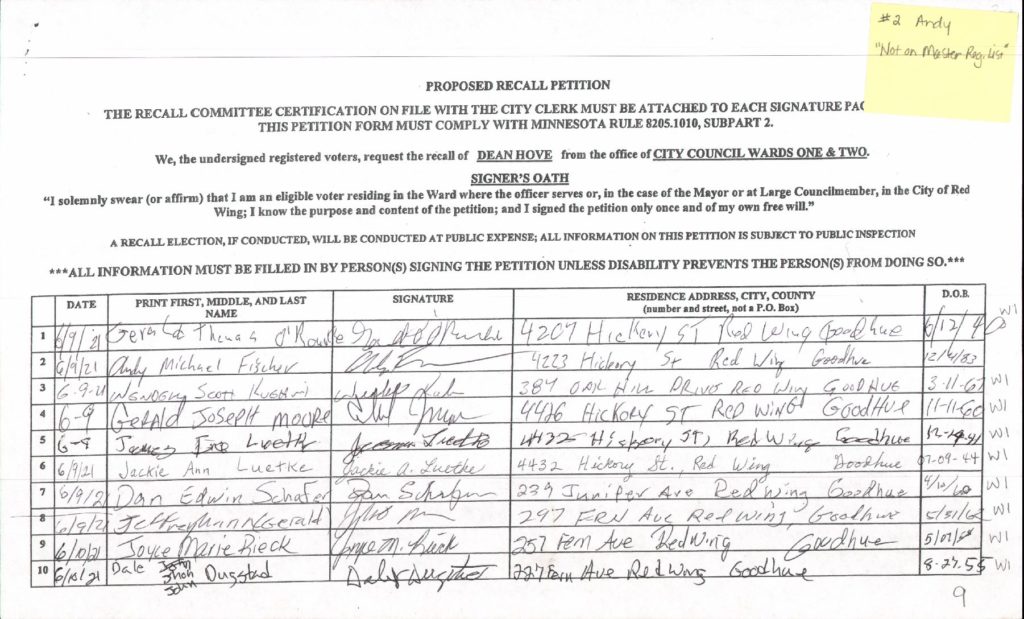 #2 Andy
"Not on Master Reg. List"
PROPOSED RECALL PETITION
THE RECALL COMMITTEE CERTIFICATION ON FILE WITH THE CITY CLERK MUST BE ATTACHED TO EACH SIGNATURE PAG
THIS PETITION FORM MUST COMPLY WITH MINNESOTA RULE 8205.1010, SUBPART 2.
We, the undersigned registered voters, request the recall of DEAN HOVE from the office of CITY COUNCIL WARDS ONE & TWO.
SIGNER'S OATH
"I solemnly swear (or affirm) that I am an eligible voter residing in the Ward where the officer serves or, in the case of the Mayor or at Large Councilmember, in the City of Red
Wing; I know the purpose and content of the petition; and I signed the petition only once and of my own free will."
A RECALL ELECTION, IF CONDUCTED, WILL BE CONDUCTED AT PUBLIC EXPENSE; ALL INFORMATION ON THIS PETITION IS SUBJECT TO PUBLIC INSPECTION
***ALL INFORMATION MUST BE FILLED IN BY PERSON(S) SIGNING THE PETITION UNLESS DISABILITY PREVENTS THE PERSON(S) FROM DOING SO.***
DATE PRINT FIRST, MIDDLE, AND LAST NAME SIGNATURE RESIDENCE ADDRESS, CITY, COUNTY (number and street, not a P.O. Box) D.O.B.
1 6/9/21 Gerald Thomas O'Rourke 4207 Hickory ST Red Wing Goodhue 6/12/40 W1
2 6/9/21 Andy Michael Fischer 4223 Hickory St Red Wing Goodhue 12/6/83
3 6-9-21 Scott 387 OAK HILL DRIVE RED WING GOODHUE 3-11-67 W1
4 6-9 GERALD JOSEPH MOORE 4426 HICKORY ST RED WING GOODHUE 11-11-60 W1
5 6-9 James Luetke 4432 Hickory ST, Red Wing Goodhue W1
6 6/9/21 Jackie Ann Luetke Jackie A. Luetke 4432 Hickory St., Red Wing Goodhue 07-09-44 W1
7 6/9/21 Dan Edwin Schafer 239 Junifer Ave Red Wing Goodhue W1
8 6/9/21 Jeffrey Mann (Gerald) 297 FERN Ave Red Wing, Goodhue W1
9 6/10/21 Joyce Marie Rieck Joyce M. Rieck 257 Fern Ave Red Wing Goodhue W1
10 6/10/21 Dale John Dugstad 227 Fern Ave Red Wing Goodhue 8-27-55 W1
9